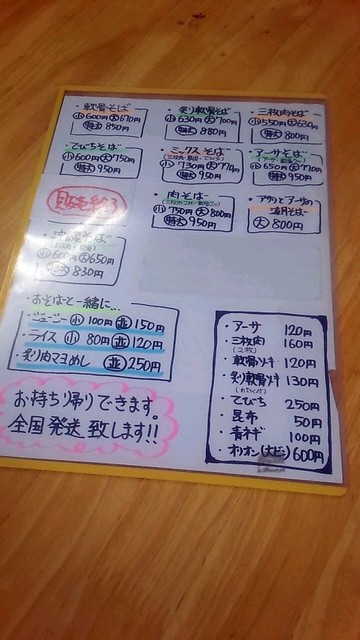 ・軟骨そば
小600円 大670円
特大 850円
・炙り軟骨そば
小630円 大700円
特大 880円
・三枚肉そば
小550円 大630円
特大 800円
・てびちそば
小600円 大750円
特大 950円
・ミックスそば
小730円 大770円
特大 950円
・アーサそば
小650円 大770円
特大 950円
販売終了
・肉そば
小750円 大800円
特大 950円
・アサリとアーサの
そば
大 800円
小600円 大650円
特大 830円
・おそばと一緒に…
・ジューシー 小100円 並150円
・ライス 小80円 並120円
・炙り肉マヨめし 並250円
お持ち帰りできます。
全国発送致します!!
・アーサ 120円
・三枚肉 160円
(2枚)
・軟骨ソーキ 120円
・炙り軟骨ソーキ 130円
・てびち 250円
・昆布 50円
・青ネギ 100円
・オリオン(大ビン) 600円